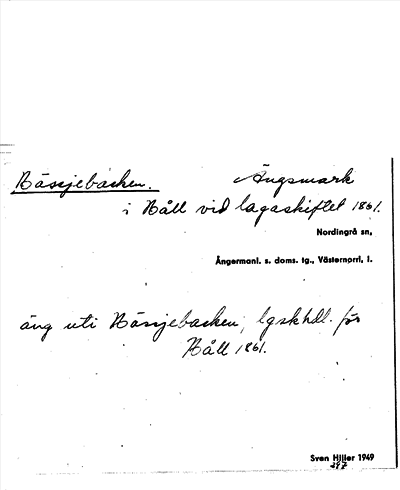 Bässjebacken. Ängsmark
i Håll vid lagaskiftet 1861.
Nordingrå sn,
Ångermanl. s. doms. tg., Västernprrl, l.
äng uti Bässjebacken, lgskhdl. för
Håll 1861.
Sven Hiller 1949